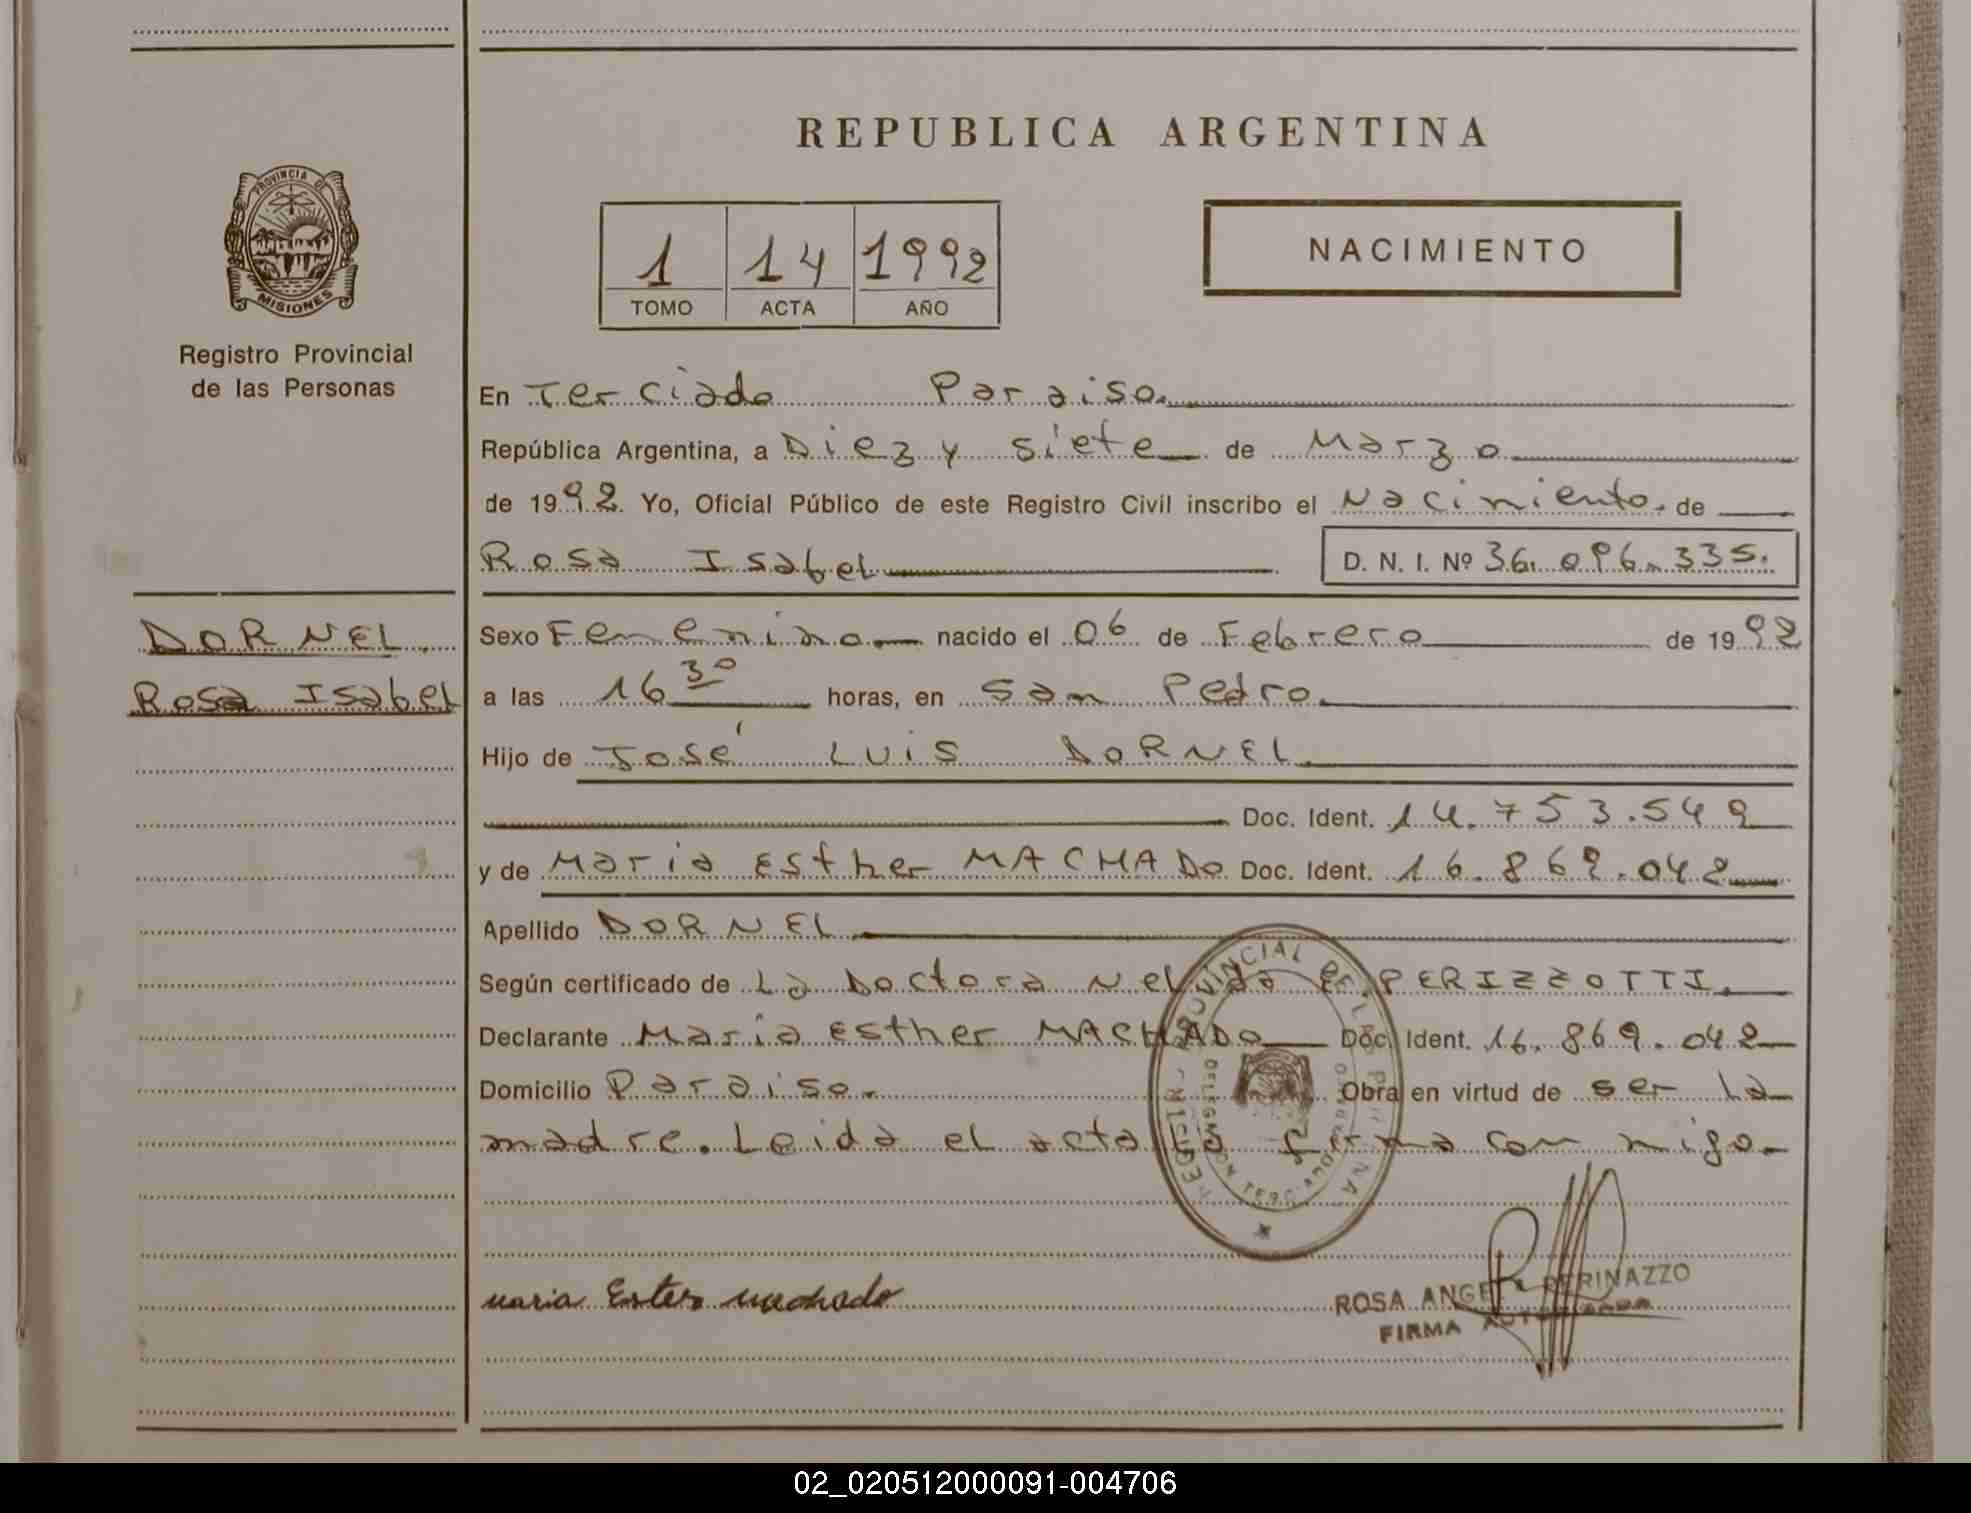 REPUBLICA ARGENTINA
PROVINCIA DE
MISIONES
Registro Provincial
de las Personas
1 14 1992
TOMO ACTA AÑO
NACIMIENTO
En Terciado Paraiso.
República Argentina, a Diez y siete de Marzo
de 1992. Yo, Oficial Público de este Registro Civil inscribo el Nacimiento. de
Rosa Isabel D. N. I. Nº 36.096.335.
DORNEL.
Rosa Isabel
Sexo Femenino. nacido el 06 de Febrero de 1992
a las 16 30 horas, en San Pedro.
Hijo de José LUIS DORNEL.
Doc. Ident. 14.753.549
y de Maria Esther MACHADO Doc. Ident. 16.869.042
Apellido DORNEL.
Según certificado de La Doctora Nelida E. PERIZZOTTI.
Declarante Maria Esther MACHADO Doc. Ident. 16.869.042
Domicilio Paraiso. Obra en virtud de ser la
madre. Leida el acta la firma con migo.
maria Ester machado
ROSA ANGELA PERINAZZO
FIRMA AUTORIZADA
02_020512000091-004706